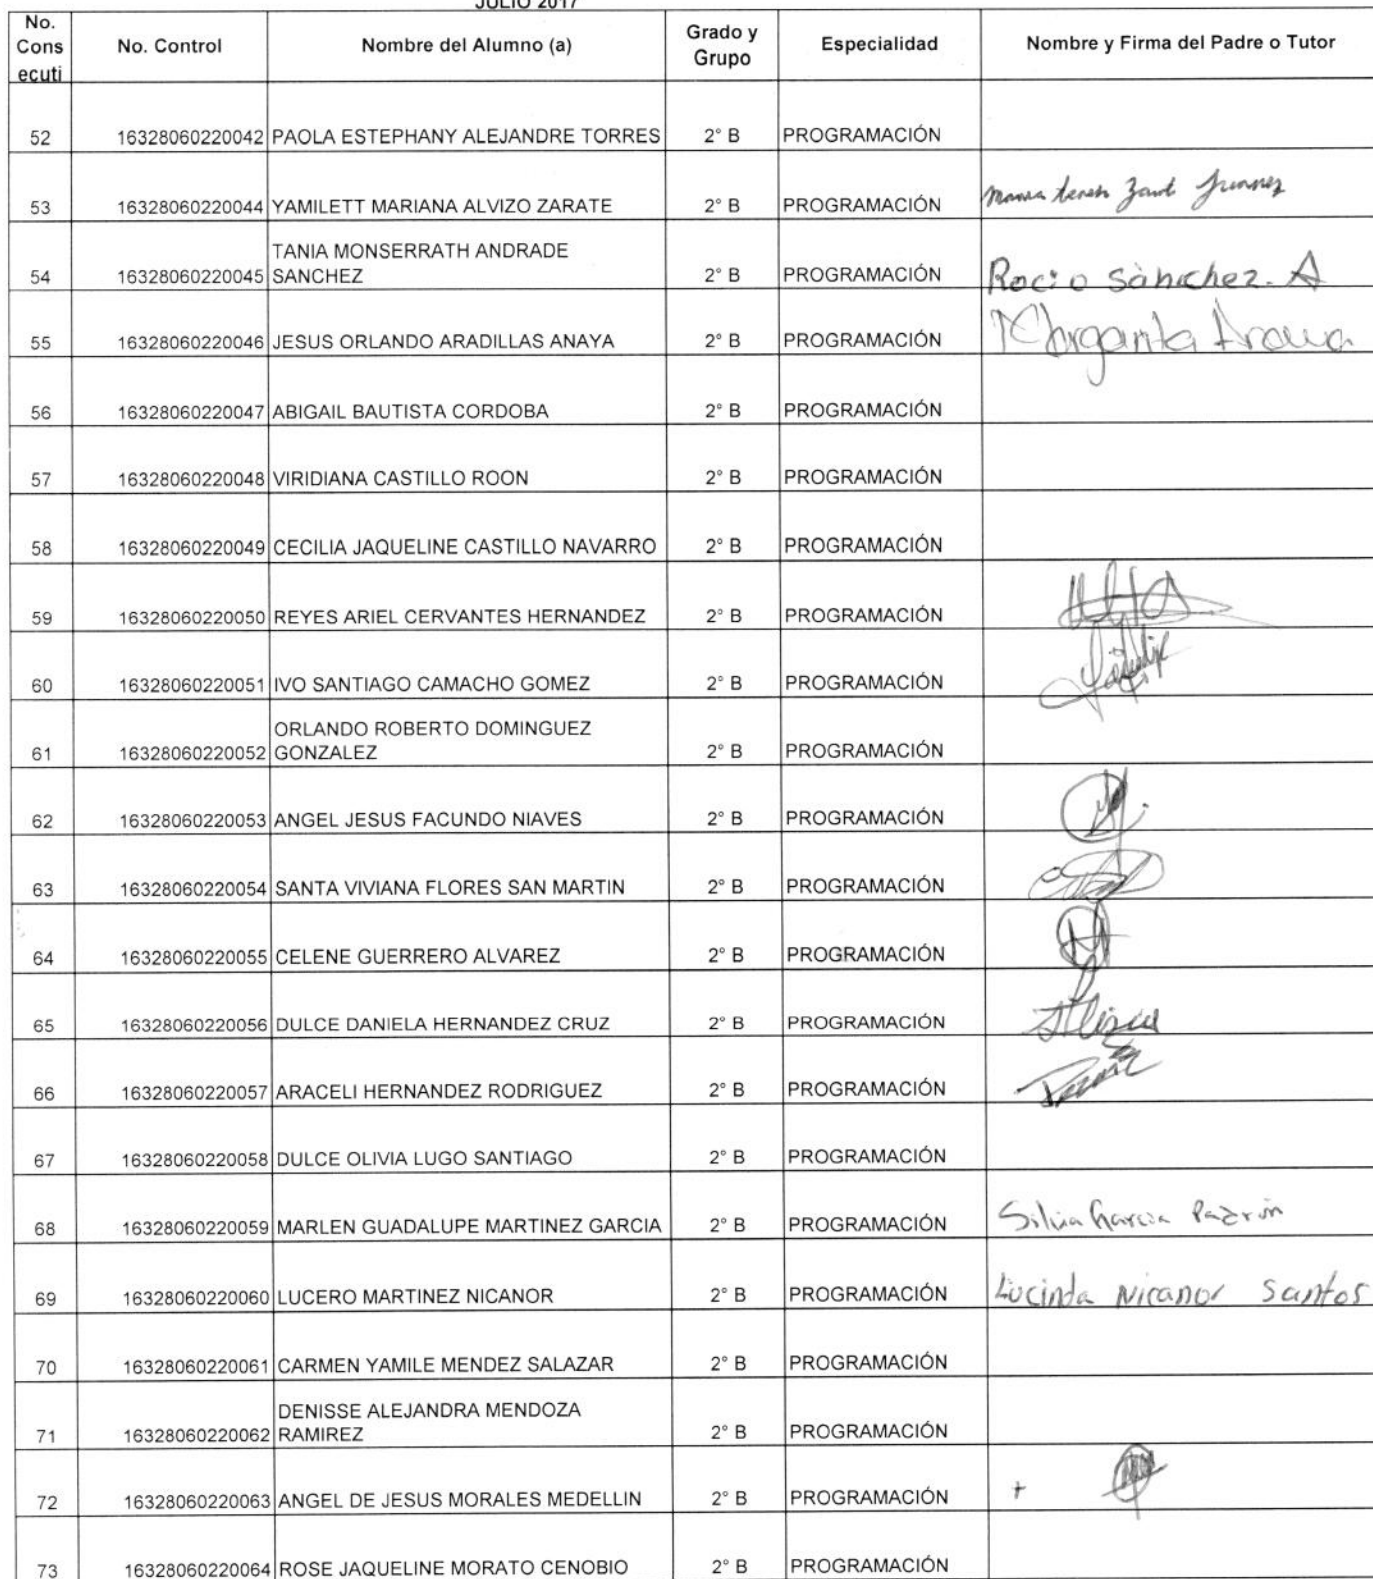 JULIO 2017
No. Cons ecuti No. Control Nombre del Alumno (a) Grado y Grupo Especialidad Nombre y Firma del Padre o Tutor
52 16328060220042 PAOLA ESTEPHANY ALEJANDRE TORRES 2° B PROGRAMACIÓN
53 16328060220044 YAMILETT MARIANA ALVIZO ZARATE 2° B PROGRAMACIÓN
54 16328060220045 TANIA MONSERRATH ANDRADE SANCHEZ 2° B PROGRAMACIÓN Rocio Sànchez. A
55 16328060220046 JESUS ORLANDO ARADILLAS ANAYA 2° B PROGRAMACIÓN Margarita
56 16328060220047 ABIGAIL BAUTISTA CORDOBA 2° B PROGRAMACIÓN
57 16328060220048 VIRIDIANA CASTILLO ROON 2° B PROGRAMACIÓN
58 16328060220049 CECILIA JAQUELINE CASTILLO NAVARRO 2° B PROGRAMACIÓN
59 16328060220050 REYES ARIEL CERVANTES HERNANDEZ 2° B PROGRAMACIÓN
60 16328060220051 IVO SANTIAGO CAMACHO GOMEZ 2° B PROGRAMACIÓN
61 16328060220052 ORLANDO ROBERTO DOMINGUEZ GONZALEZ 2° B PROGRAMACIÓN
62 16328060220053 ANGEL JESUS FACUNDO NIAVES 2° B PROGRAMACIÓN
63 16328060220054 SANTA VIVIANA FLORES SAN MARTIN 2° B PROGRAMACIÓN
64 16328060220055 CELENE GUERRERO ALVAREZ 2° B PROGRAMACIÓN
65 16328060220056 DULCE DANIELA HERNANDEZ CRUZ 2° B PROGRAMACIÓN
66 16328060220057 ARACELI HERNANDEZ RODRIGUEZ 2° B PROGRAMACIÓN
67 16328060220058 DULCE OLIVIA LUGO SANTIAGO 2° B PROGRAMACIÓN
68 16328060220059 MARLEN GUADALUPE MARTINEZ GARCIA 2° B PROGRAMACIÓN Silvia Garcia Padrón
69 16328060220060 LUCERO MARTINEZ NICANOR 2° B PROGRAMACIÓN Lucinda Nicanor Santos
70 16328060220061 CARMEN YAMILE MENDEZ SALAZAR 2° B PROGRAMACIÓN
71 16328060220062 DENISSE ALEJANDRA MENDOZA RAMIREZ 2° B PROGRAMACIÓN
72 16328060220063 ANGEL DE JESUS MORALES MEDELLIN 2° B PROGRAMACIÓN +
73 16328060220064 ROSE JAQUELINE MORATO CENOBIO 2° B PROGRAMACIÓN